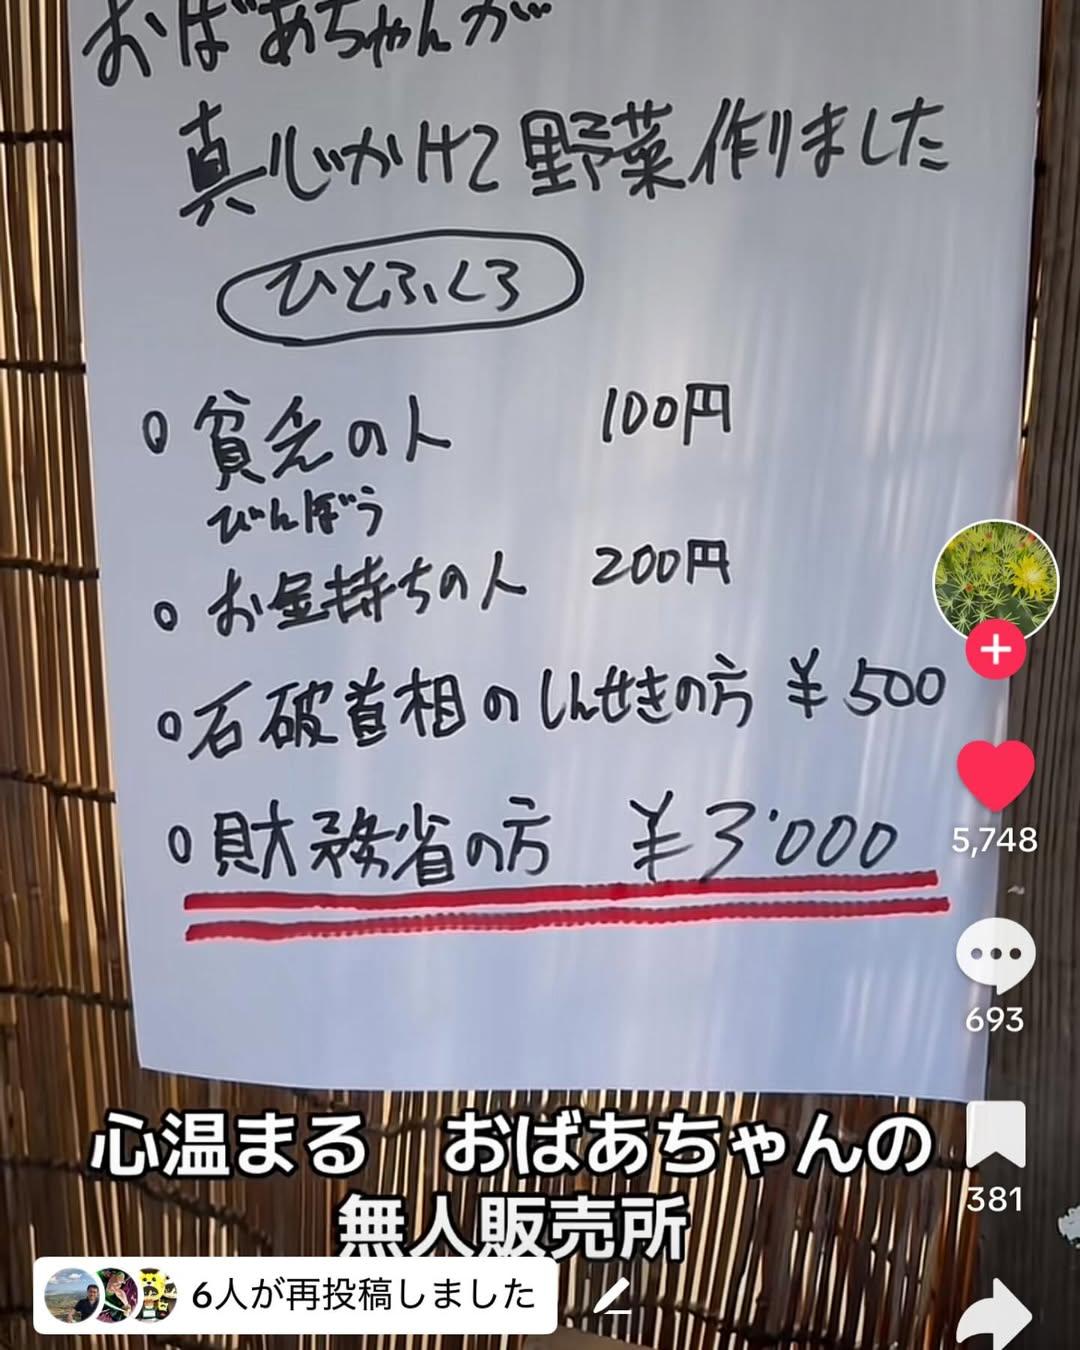 おばあちゃんが…
真心かけて野菜作りました
ひとふくろ
○貧乏の人 100円
びんぼう
○お金持ちの人 200円
○石破首相のしんせきの方 ¥500
○財務省の方 ¥3'000
5,748
693
心温まる おばあちゃんの
無人販売所
381
6人が再投稿しました